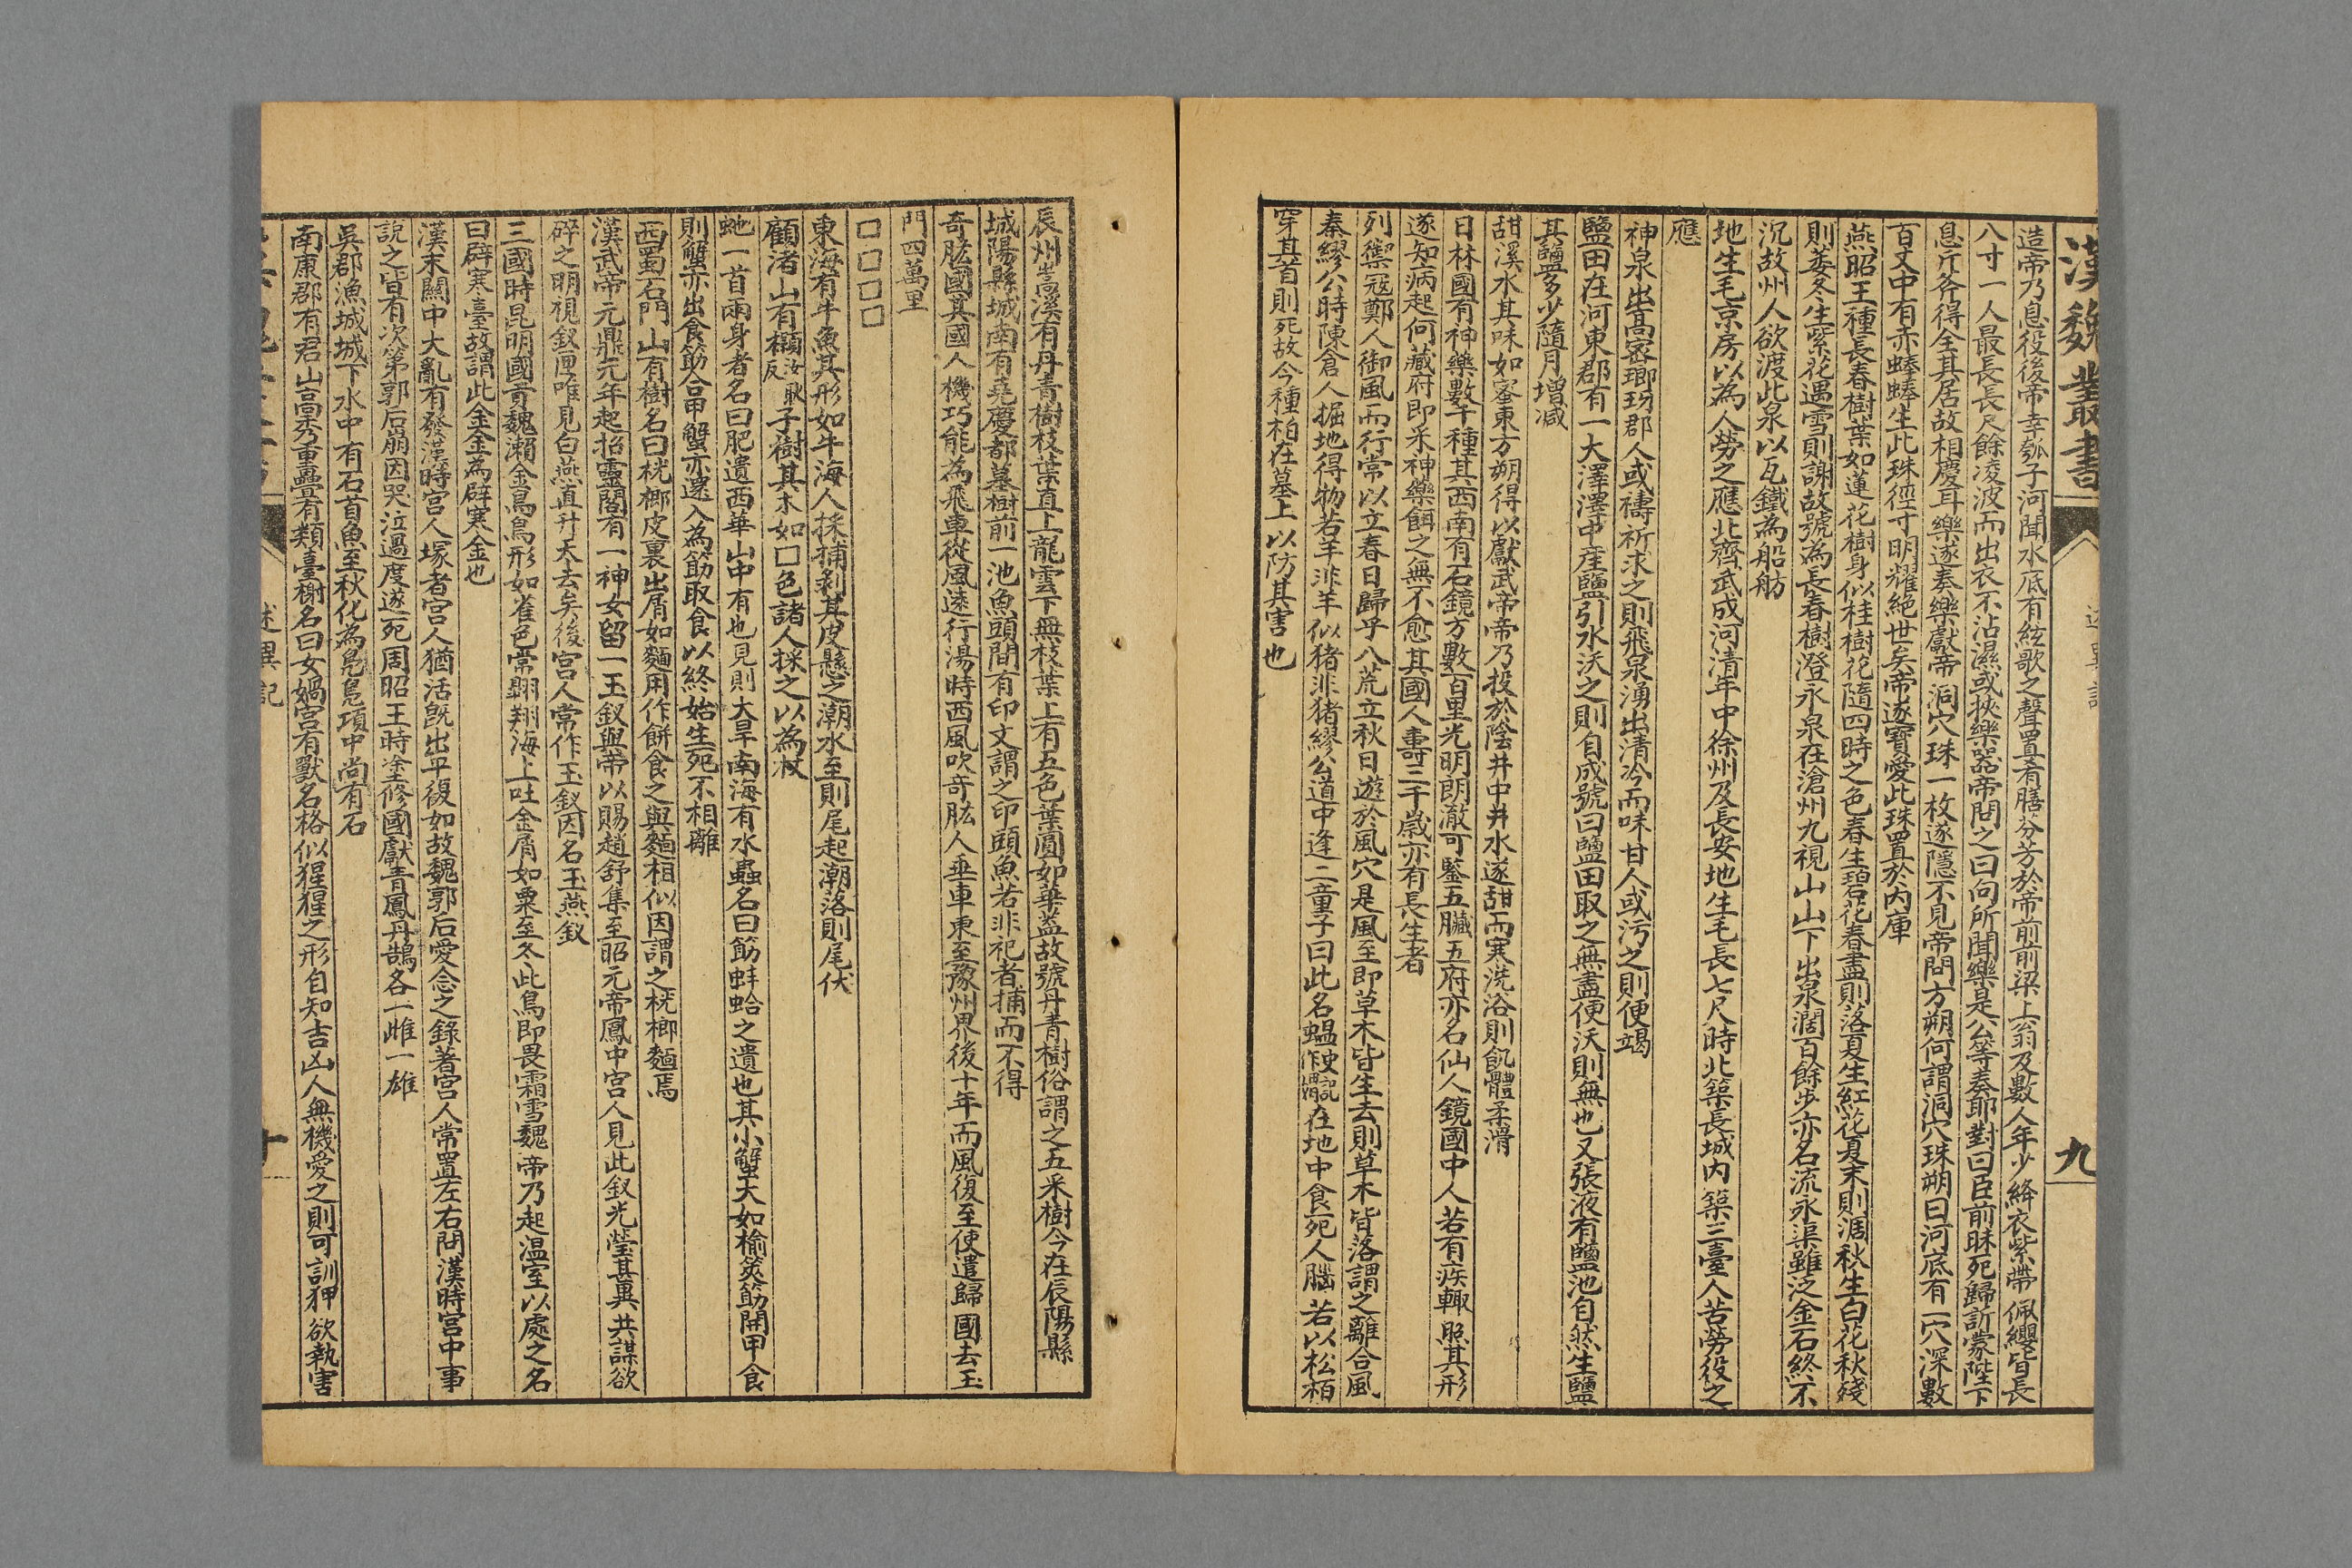 漢魏叢書
述異記
九
造帝乃息役後帝幸瓠子河聞水底有絃歌之聲置肴膳芬芳於帝前前梁上翁及數人年少絳衣紫帶佩纓皆長
八寸一人最長長尺餘凌波而出衣不沾濕或挾樂器帝問之曰向所聞樂是公等奏耶對曰臣前昧死歸訴蒙陛下
息斤斧得全其居故相慶耳樂遂奏樂獻帝洞穴珠一枚遂隱不見帝問方朔何謂洞穴珠朔曰河底有一穴深數
百丈中有赤蜯蜯生此珠徑寸明耀絕世矣帝遂寶愛此珠置於內庫
燕昭王種長春樹葉如蓮花樹身似桂樹花隨四時之色春生碧花春盡則落夏生紅花夏末則凋秋生白花秋殘
則萎冬生紫花遇雪則謝故號為長春樹澄永泉在滄州九視山山下出泉濶百餘步亦名流永渠雖泛金石終不
沉故州人欲渡此泉以瓦鐵為船舫
地生毛京房以為人勞之應北齊武成河清年中徐州及長安地生毛長七尺時北築長城內築三臺人苦勞役之
應
神泉出高密瑯琊郡人或禱祈求之則飛泉湧出清冷而味甘人或污之則便竭
鹽田在河東郡有一大澤澤中產鹽引水沃之則自成號曰鹽田取之無盡便沃則無也又張液有鹽池自然生鹽
其鹽多少隨月增减
甜溪水其味如蜜東方朔得以獻武帝帝乃投於陰井中井水遂甜而寒洗浴則飢體柔滑
日林國有神藥數千種其西南有石鏡方數百里光明朗澈可鑒五臟五府亦名仙人鏡國中人若有疾輙照其形
遂知病起何藏府即采神藥餌之無不愈其國人壽三千歲亦有長生者
列禦寇鄭人御風而行常以立春日歸乎八荒立秋日遊於風穴是風至即草木皆生去則草木皆落謂之離合風
秦繆公時陳倉人掘地得物若羊非羊似猪非猪繆公道中逢二童子曰此名蝹在地中食死人腦若以松栢
穿其首則死故今種柏在墓上以防其害也
辰州嵩溪有丹青樹枝葉直上龍雲下無枝葉上有五色葉圓如華葢故號丹青樹俗謂之五采樹今在辰陽縣
城陽縣城南有堯慶都墓樹前一池魚頭間有印文謂之印頭魚若非祀者捕而不得
奇肱國其國人機巧能為飛車從風遠行湯時西風吹奇肱人垂車東至豫州界後十年而風復至使遣歸國去玉
門四萬里
□□□□
東海有牛魚其形如牛海人採捕剥其皮懸之潮水至則尾起潮落則尾伏
顧渚山有櫇汝耿反子樹其木如□色諸人採之以為杖
虵一首兩身者名曰肥遺西華山中有也見則大旱南海有水蟲名曰筯蚌蛤之遺也其小蟹大如榆筴筯開甲食
則蟹亦出食筯合甲蟹亦還入為筯取食以終始生死不相離
西蜀石門山有樹名曰桄榔皮裏出屑如麵用作餅食之與麵相似因謂之桄榔麵焉
漢武帝元鼎元年起招靈閣有一神女留一玉釵與帝以賜趙舒集至昭元帝鳳中宮人見此釵光瑩甚異共謀欲
碎之明視釵匣唯見白燕直升天去矣後宮人常作玉釵因名玉燕釵
三國時昆明國貢魏瀨金鳥鳥形如雀色常翺翔海上吐金屑如粟至冬此鳥即畏霜雪魏帝乃起温室以處之名
曰辟寒臺故謂此金金為辟寒金也
漢末關中大亂有發漢時宮人塚者宮人猶活既出平復如故魏郭后愛念之錄著宮人常置左右問漢時宮中事
說之皆有次第郭后崩因哭泣過度遂死周昭王時塗修國獻青鳳丹鵠各一雌一雄
吳郡漁城城下水中有石首魚至秋化為鳧鳧項中尚有石
南康郡有君山高秀重疊有類臺榭名曰女媧宮有獸名格似猩猩之形自知吉凶人無機愛之則可訓狎欲執害
述異記
十